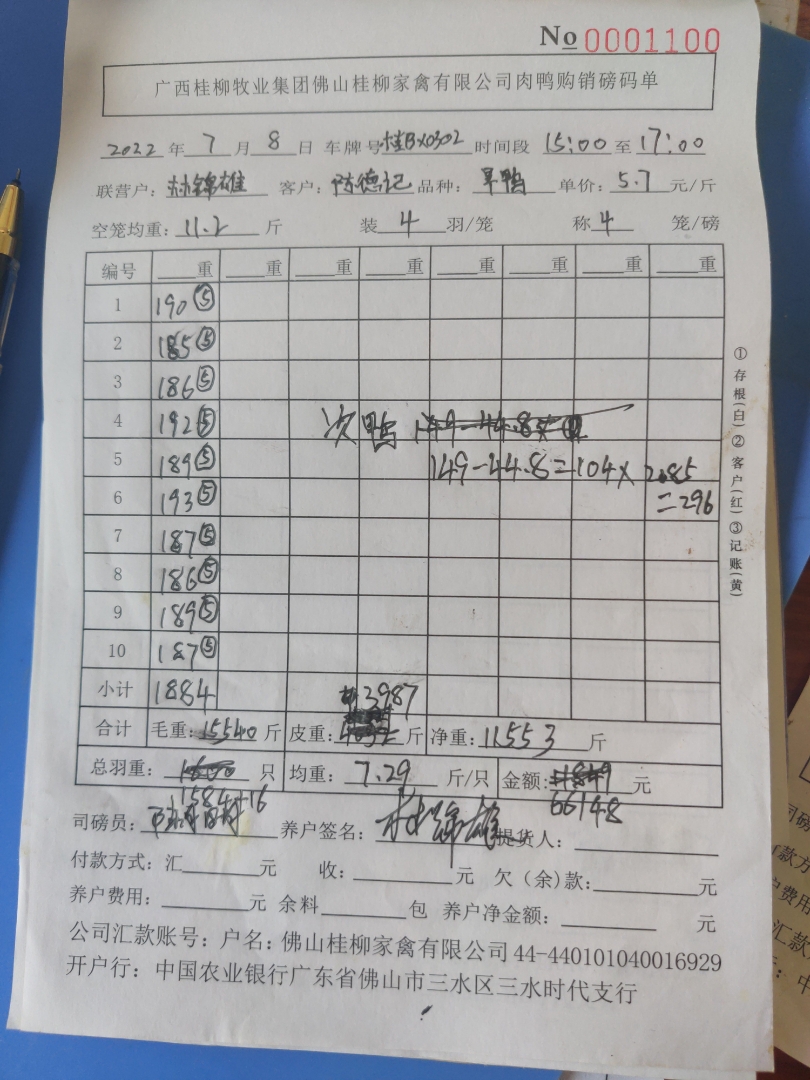 No 0001100
广西桂柳牧业集团佛山桂柳家禽有限公司肉鸭购销磅码单
2022 年 7 月 8 日 车牌号 桂BX0302 时间段 15:00 至 17:00
联营户: 林锦雄 客户: 陈德记 品种: 旱鸭 单价: 5.7 元/斤
空笼均重: 11.2 斤 装 4 羽/笼 称 4 笼/磅
编号 重 重 重 重 重 重 重 重
1 190 ⑤
2 185 ⑤
3 186 ⑤
4 192 ⑤ 次鸭
5 189 ⑤ 149-44.8=104x 2.85
6 193 ⑤ =296
7 187 ⑤
8 186 ⑤
9 189 ⑤
10 187 ⑤
小计 1884 3987
合计 毛重: 15540 斤 皮重: 斤 净重: 11553 斤
总羽重: 1600 只 均重: 7.29 斤/只 金额: 元
1584+16 66148
司磅员: 养户签名: 林锦雄 提货人:
付款方式: 汇 元 收: 元 欠(余)款: 元
养户费用: 元 余料 包 养户净金额: 元
公司汇款账号: 户名: 佛山桂柳家禽有限公司 44-440101040016929
开户行: 中国农业银行广东省佛山市三水区三水时代支行
①存根(白)②客户(红)③记账(黄)